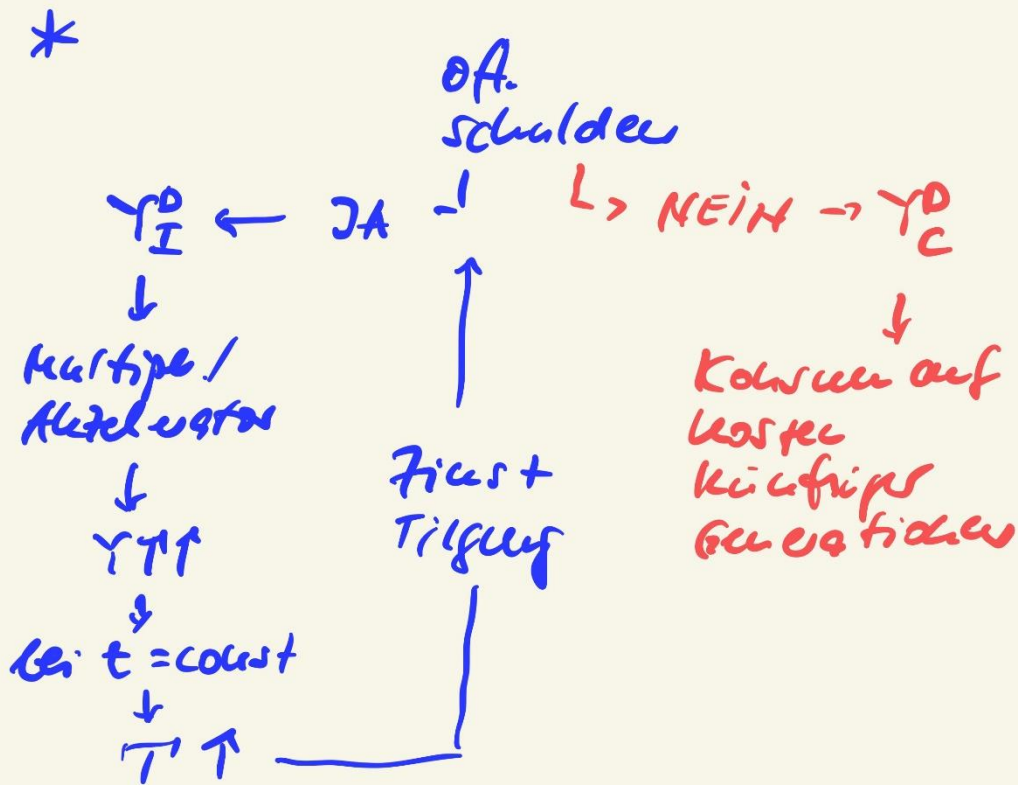 *
öff.
schulden
Y^D_I ← JA
↳ NEIN → Y^D_C
↓
Multipl. /
Akzelerator
↓
Y↑↑
↓
bei t = const
↓
T ↑
Zins +
Tilgung
↓
Konsum auf
Kosten
künftiger
Generationen